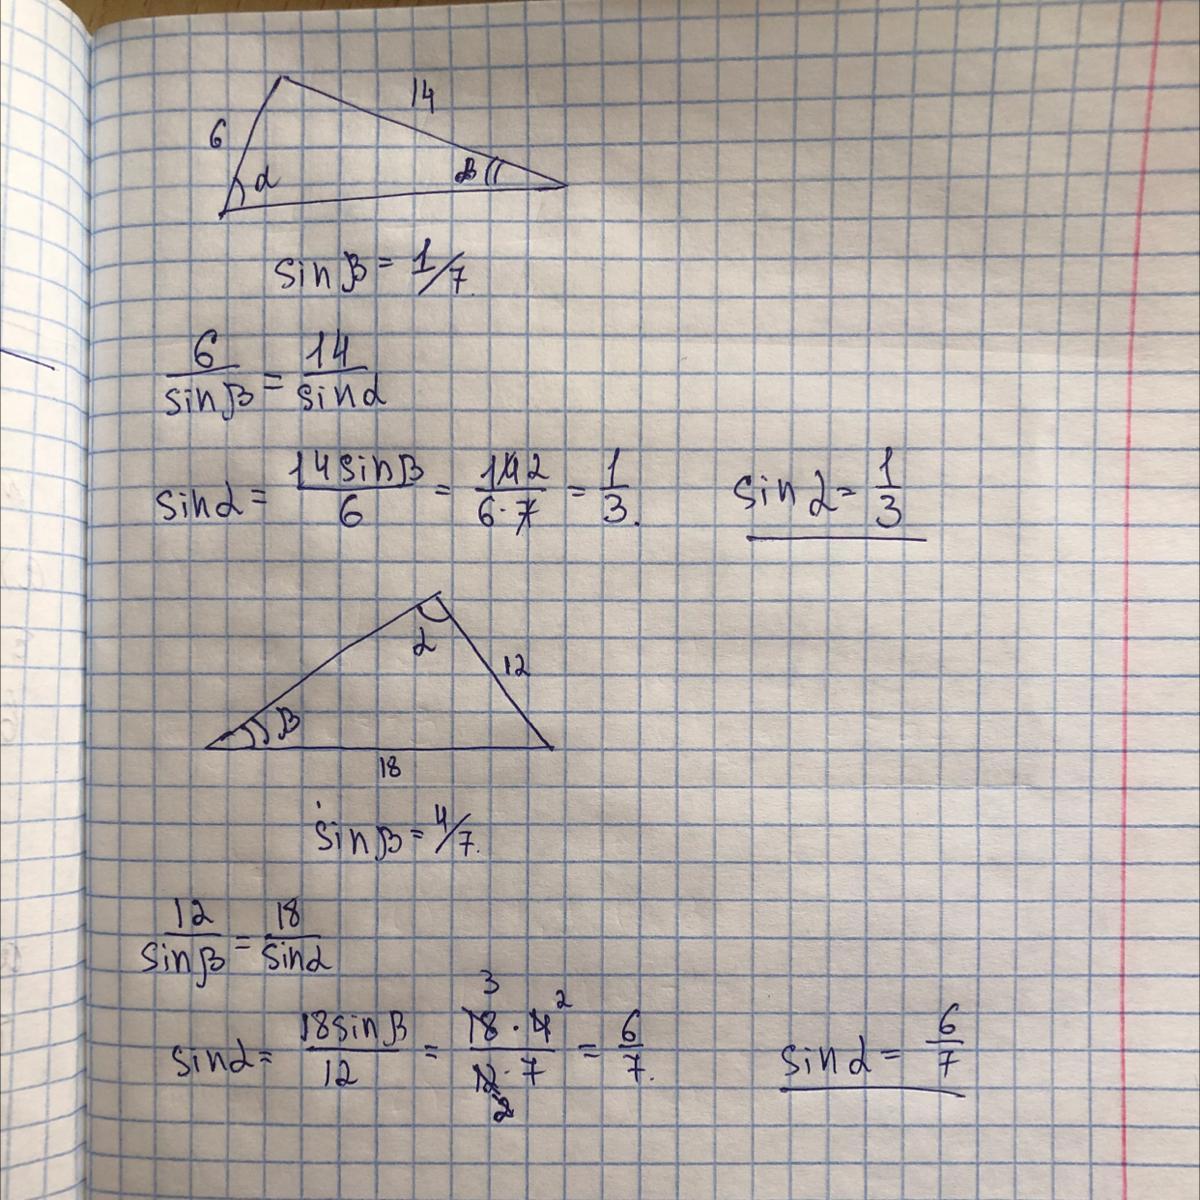 14
6
α β
sin β = 1/7.
6/sin β = 14/sin α
sin α = 14 sin β/6 = 14 2/6·7 = 1/3. sin α = 1/3
α
12
β
18
sin β = 4/7.
12/sin β = 18/sin α
3 2
sin α = 18 sin β/12 = 18·4/12·7 = 6/7. sin α = 6/7
2